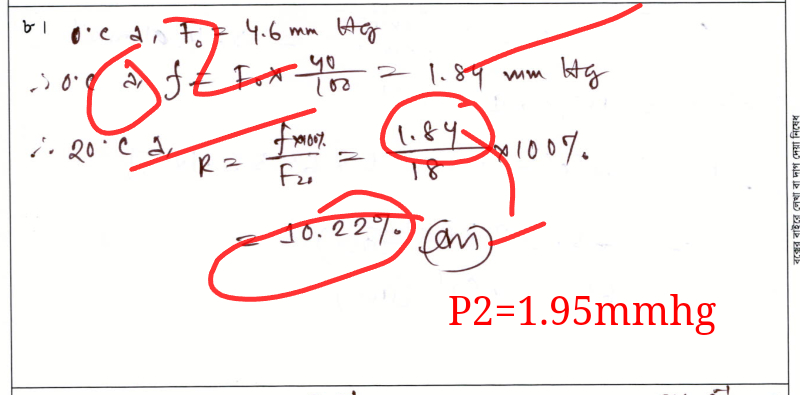 ৮। 0°C এ, F₀ = 4.6 mm Hg
∴ 0°C এ, f = F₀ × 40/100 = 1.84 mm Hg
∴ 20°C এ, R = f×100%/F₂₀ = 1.84/18 × 100%
= 10.22% (Ans)
P2=1.95mmhg
বক্সের বাইরে লেখা বা দাগ দেয়া নিষেধ